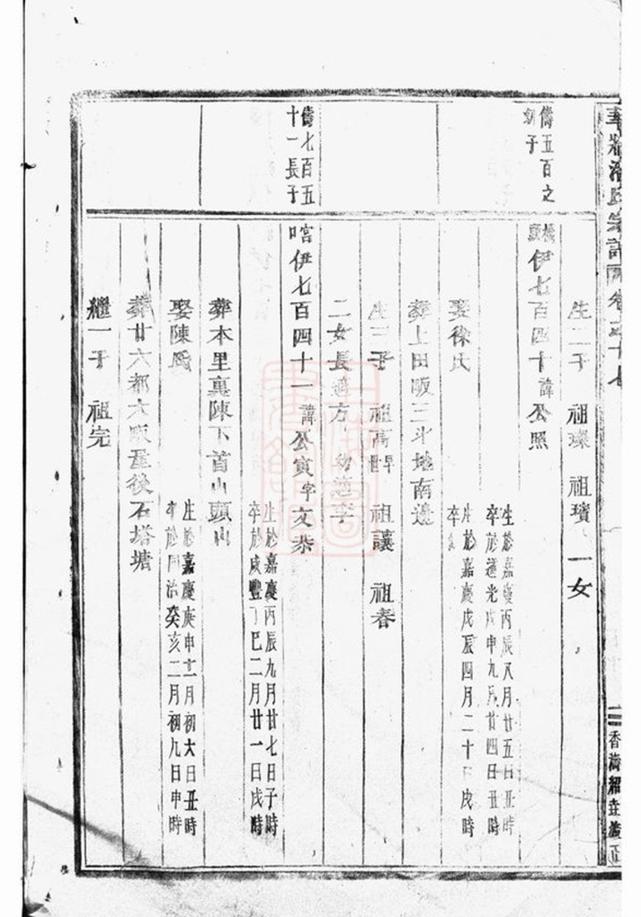 宗譜
卷之十七
生二子 祖璨 祖璸 一女
儔五百之
子
伊七百四十諱公照
生於嘉慶丙辰八月廿五日丑時
卒於道光戊申九月廿四日丑時
娶徐氏
生於嘉慶戊辰四月二十日戌時
卒
葬上田畈三斗坵南邊
生三子 祖高早世 祖讓 祖春
二女長適方 幼適李
儔七百五
十一長子
伊七百四十一諱公寅字文恭
生於嘉慶丙辰九月廿七日子時
卒於咸豐丁巳二月廿一日戌時
葬本里裏陳下首山頭山
娶陳氏
生於嘉慶庚申十二月初六日丑時
卒於同治癸亥二月初九日申時
葬廿六都大畈後石塔塘
繼一子 祖完